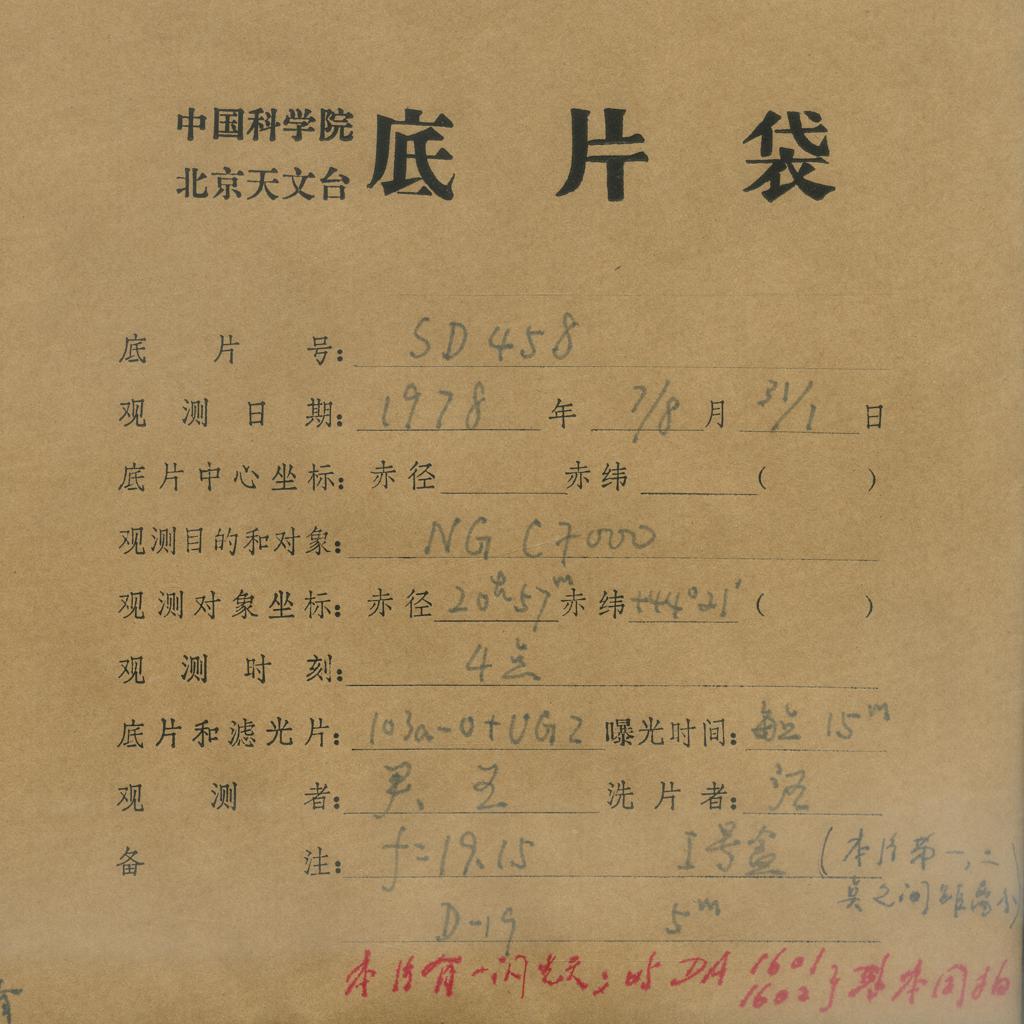 中国科学院
北京天文台 底片袋
底片号: SD 458
观测日期: 1978 年 7/8 月 31/1 日
底片中心坐标: 赤径 赤纬 ( )
观测目的和对象: NGC7000
观测对象坐标: 赤径 20h57m 赤纬 +44°21′ ( )
观测时刻: 4点
底片和滤光片: 103a-O+UG2 曝光时间: 每点 15m
观测者: 王 洗片者:
备注: f=19.15 I号盒 (本片第一,二
点之间距离小)
D-19 5m
本片有一闪光点; 与DA 1601 1602 基本同拍